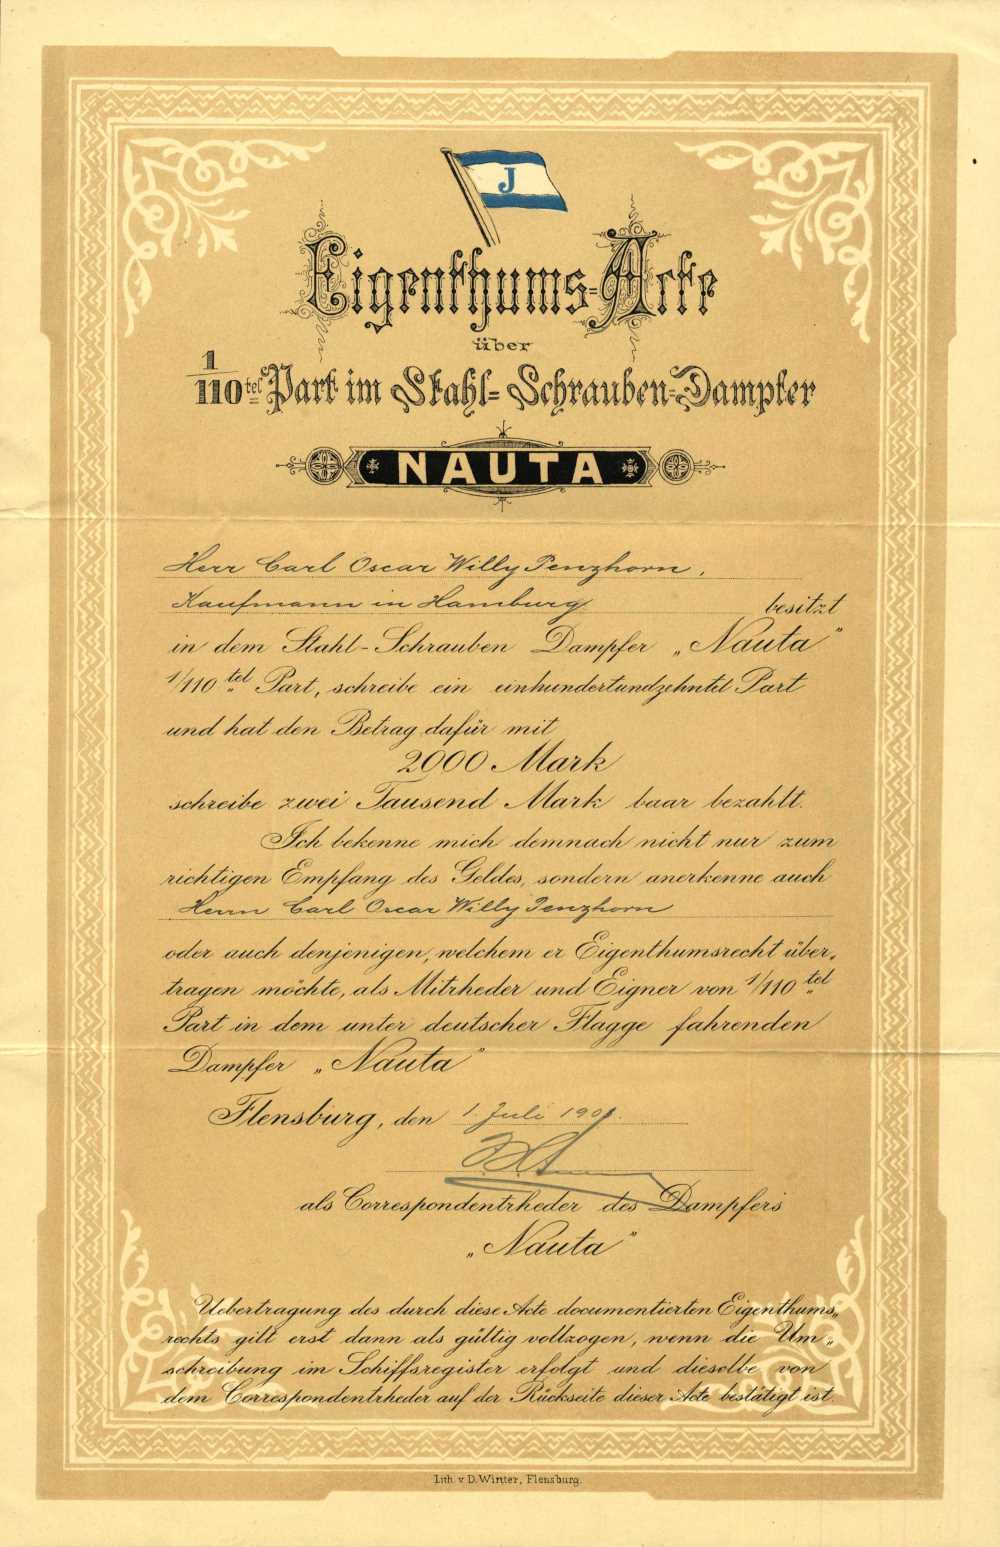 J
Eigenthums-Acte
über
1/110 tel Part im Stahl-Schrauben-Dampfer
NAUTA
Herr Carl Oscar Willy Penzhorn,
Kaufmann in Hamburg besitzt
in dem Stahl-Schrauben Dampfer „Nauta”
1/110 tel Part, schreibe ein einhundertundzehntel Part
und hat den Betrag dafür mit
2000 Mark
schreibe zwei Tausend Mark baar bezahlt.
Ich bekenne mich demnach nicht nur zum
richtigen Empfang des Geldes, sondern anerkenne auch
Herrn Carl Oscar Willy Penzhorn
oder auch denjenigen, welchem er Eigenthumsrecht über„
tragen möchte, als Mitrheder und Eigner von 1/110 tel
Part in dem unter deutscher Flagge fahrenden
Dampfer „Nauta”
Flensburg, den 1. Juli 1901.
als Correspondentrheder des Dampfers
„Nauta”
Uebertragung des durch diese Acte documentierten Eigenthums„
rechts gilt erst dann als gültig vollzogen, wenn die Um„
schreibung im Schiffsregister erfolgt und dieselbe von
dem Correspondentrheder auf der Rückseite dieser Acte bestätigt ist.
Lith. v. D. Winter, Flensburg.